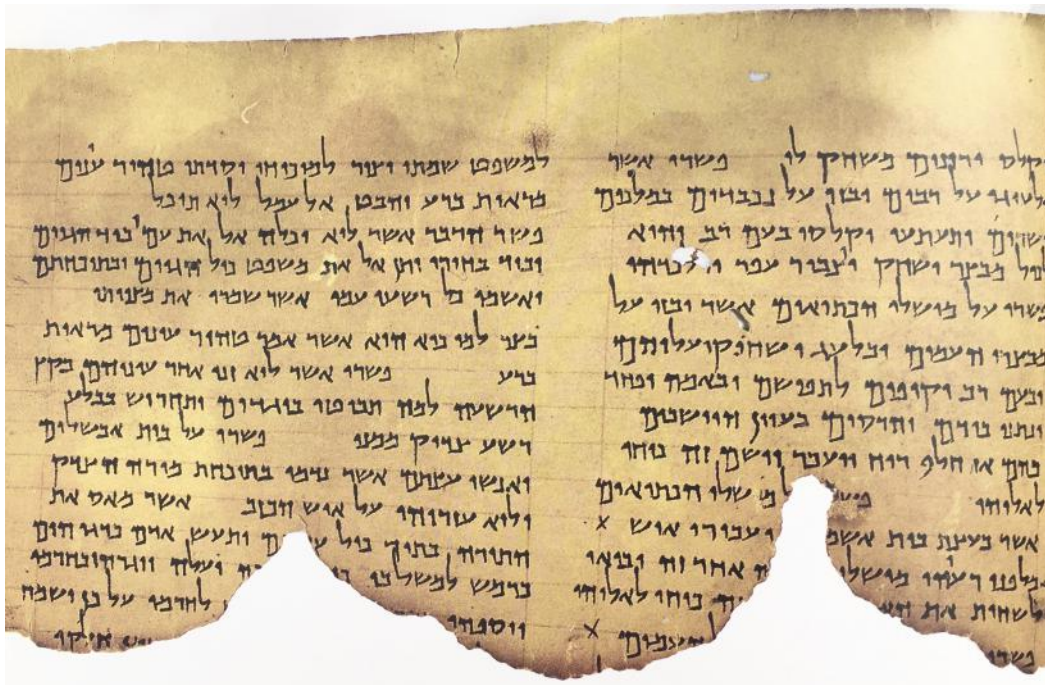 יקלס ורזנים משחק לו פשרו אשר
ילעיגו על רבים ובזו על נכבדים במלכים
ושרים יתעתעו וקלסו בעם רב והוא
לכול מבצר ישחק ויצבור עפר וילכדהו
פשרו על מושלי הכתיאים אשר יבזו על
מבצרי העמים ובלעג ישחוקו עליהם
ובעם רב יקיפום לתפושם ובאמה ופחד
ינתנו בידם והרסום בעוון היושבים
בהם אז חלף רוח ויעבר וישם זה כוחו
לאלוהו מושלי הכתיאים
אשר בעצת בית יעבירו איש
מלפני רעיהו אחר זה יבואו
לשחית את כוחו לאלוהו
פשרו העמים
למשפט שמתו וצור למוכיחו יסדתו טהור עינים
מראות ברע והבט אל עמל לוא תוכל
פשר הדבר אשר לוא יכלה אל את עמו ביד הגוים
וביד בחירו יתן אל את משפט כול הגוים ובתוכחתם
יאשמו כל רשעי עמו אשר שמרו את מצוותו
בצר למו כיא הוא אשר אמר טהור עינים מראות
ברע פשרו אשר לוא זנו אחר עיניהם בקץ
הרשעה למה תביטו בוגדים ותחריש בבלע
רשע צדיק ממנו פשרו על בית אבשלום
ואנשי עצתם אשר נדמו בתוכחת מורה הצדק
ולוא עזרוהו על איש הכזב אשר מאס את
התורה בתוך כול ותעש אדם כדגי הים
כרמש למשל בו יעלה ויגרהו בחרמו
ויספהו לחרמו על כן ישמח